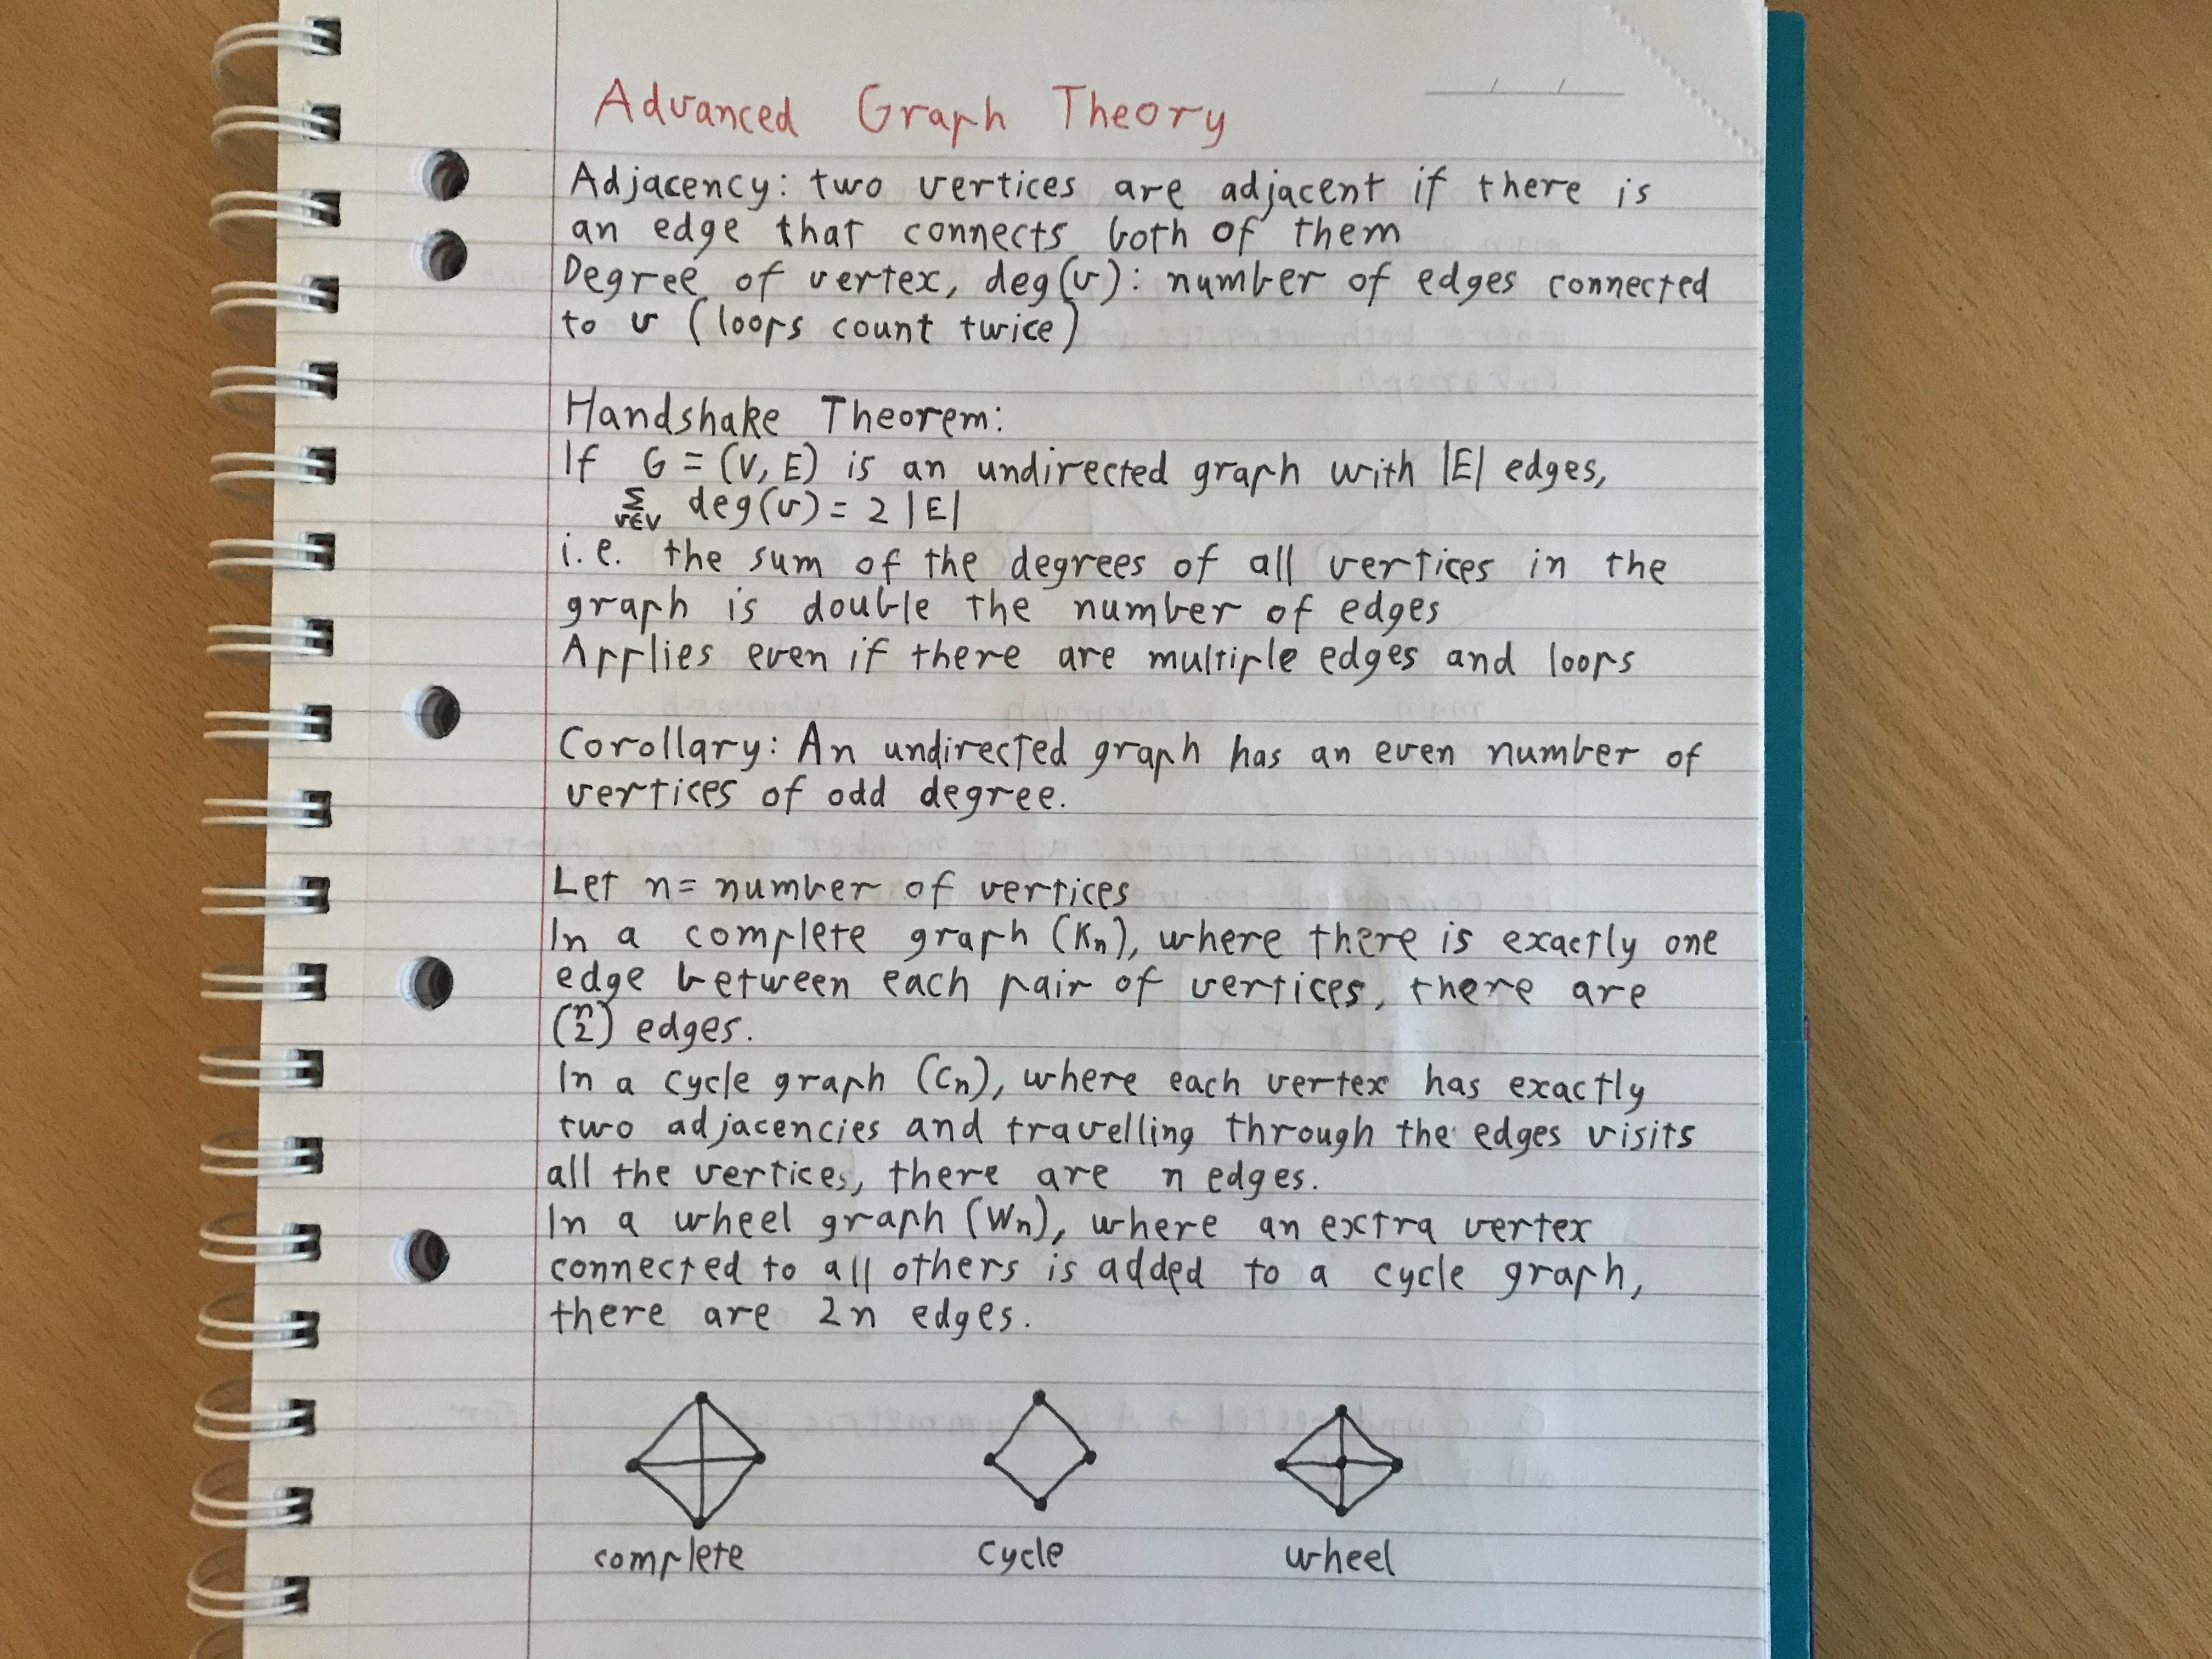 Advanced Graph Theory
Adjacency: two vertices are adjacent if there is
an edge that connects both of them
Degree of vertex, deg(v): number of edges connected
to v (loops count twice)
Handshake Theorem:
If G = (V, E) is an undirected graph with |E| edges,
∑ v∈V deg(v) = 2 |E|
i.e. the sum of the degrees of all vertices in the
graph is double the number of edges
Applies even if there are multiple edges and loops
Corollary: An undirected graph has an even number of
vertices of odd degree.
Let n = number of vertices
In a complete graph (Kn), where there is exactly one
edge between each pair of vertices, there are
(n 2) edges.
In a cycle graph (Cn), where each vertex has exactly
two adjacencies and travelling through the edges visits
all the vertices, there are n edges.
In a wheel graph (Wn), where an extra vertex
connected to all others is added to a cycle graph,
there are 2n edges.
complete cycle wheel